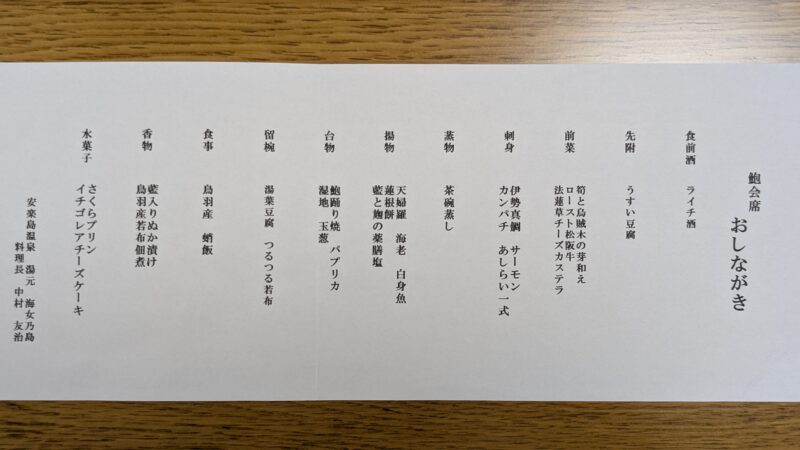 鮑会席
おしながき
食前酒 ライチ酒
先附 うすい豆腐
前菜 筍と烏賊木の芽和え
ロースト松阪牛
法蓮草チーズカステラ
刺身 伊勢真鯛 サーモン
カンパチ あしらい一式
蒸物 茶碗蒸し
揚物 天婦羅 海老 白身魚
蓮根餅
藍と麹の薬膳塩
台物 鮑踊り焼 パプリカ
湿地 玉葱
留椀 湯葉豆腐 つるつる若布
食事 鳥羽産 蛸飯
香物 藍入りぬか漬け
鳥羽産若布佃煮
水菓子 さくらプリン
イチゴレアチーズケーキ
安楽島温泉 湯元 海女乃島
料理長 中村 友治